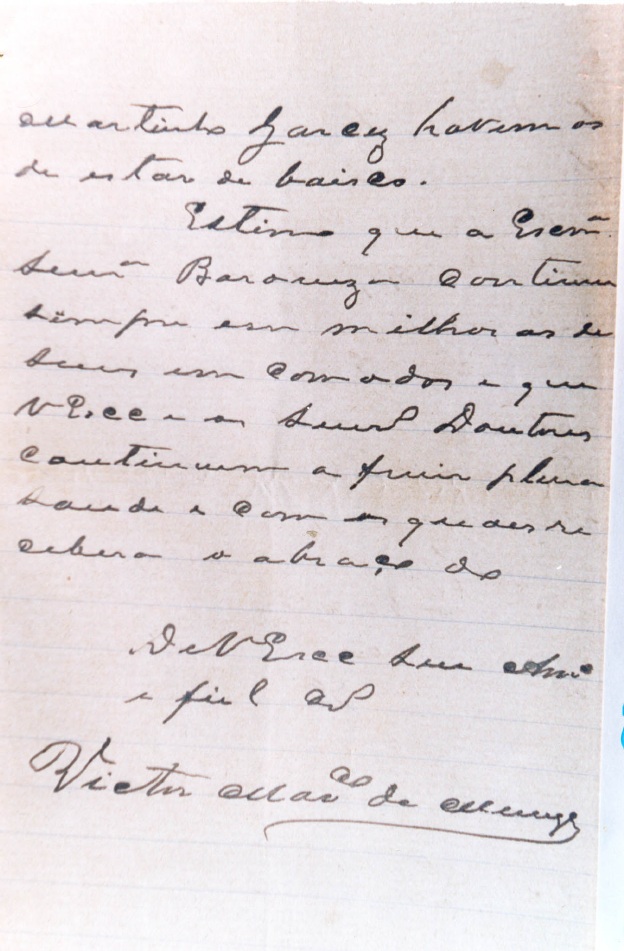 Martinho Garcez havemos
de estar de baixo.
Estimo que a Excmª
Senrª Baroneza continue
sempre em milhoras de
seus incomodos e que
VExcª e os Senrs Doutores
continuem a fruir plena
saude e com as
recebera o abraço do
De VExcª seu Amº
e fiel
Victor Manoel de Menezes